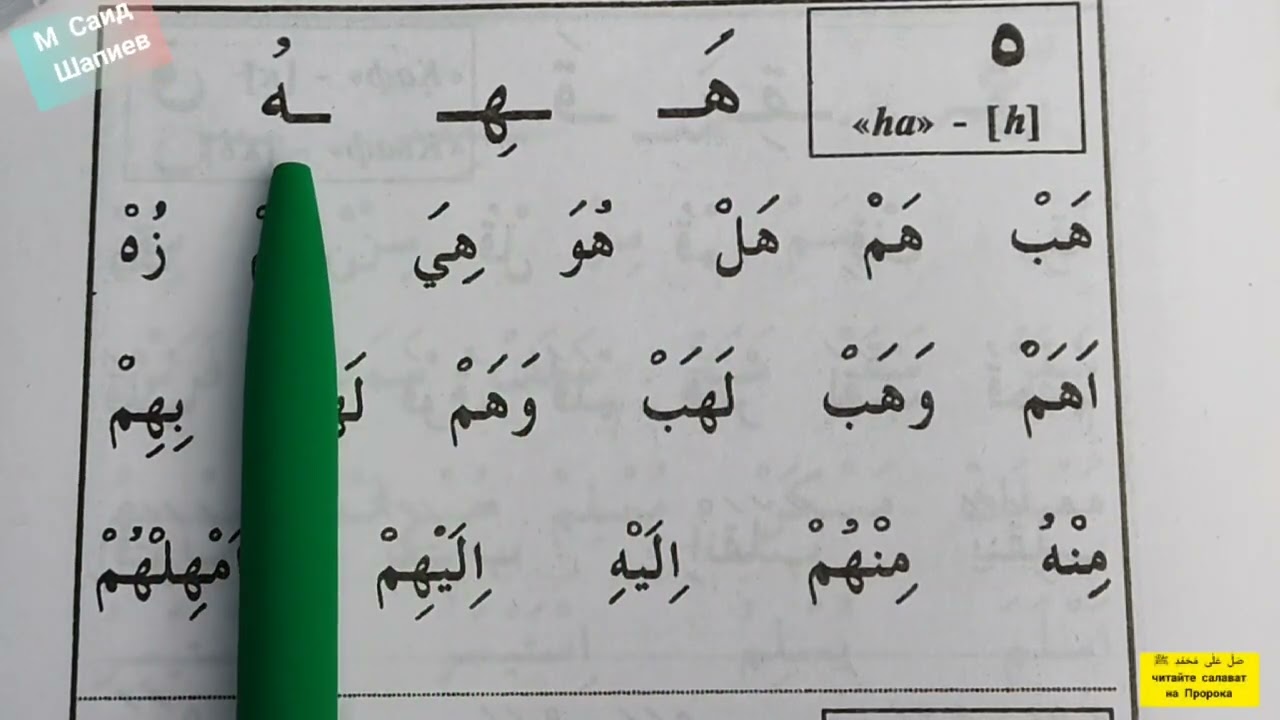 М Саид
Шапиев
ه
«ha» - [h]
هَـ ـهِـ ـهُ
هَبْ هَمْ هَلْ هُوَ هِيَ زُهْ
اَهَمْ وَهَبْ لَهَبْ وَهَمْ بِهِمْ
مِنْهُ مِنْهُمْ اِلَيْهِ اِلَيْهِمْ اَمْهِلْهُمْ
صَلِّ عَلَى مُحَمَّدٍ ﷺ
читайте салават
на Пророка